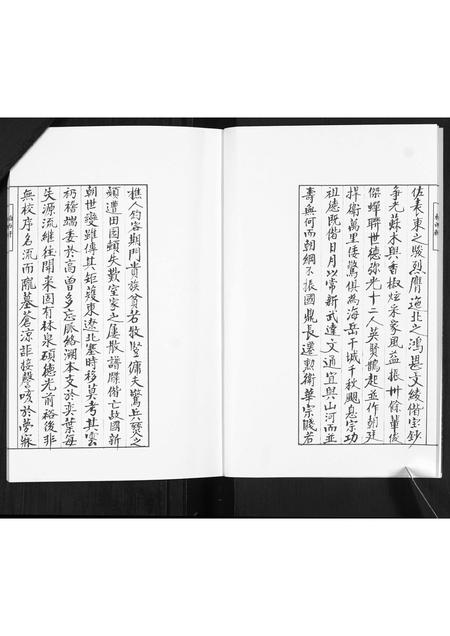 佐表東之駿烈膺迤北之鴻基文綾偕宝鈔
争光蘇木與香椒炫采家風益振卅餘輩俊
傑蟬聯世德弥光十二人英賢鵲起並作朝廷
捍衛萬里倭驚俱為海岳干城千秋颶息宗功
祖德既偕日月以常新武達文通宜與山河而並
壽與何而朝綱不振國鼎長遷勲衛華宗賤若
樵人鈞客期門貴族貧若牧竪傭夫驚兵燹之
頻遭田園頓失歎室家之屢散譜牒偕亡故國新
朝世變雖傳其矩薙東遼北塞時移莫考其雲
礽稽端委於高曾多忘脈絡溯本支於奕葉每
失源流維往開来固有林泉碩德光前裕後非
無校序名流而隴墓蒼涼誰接謦咳於夢寐